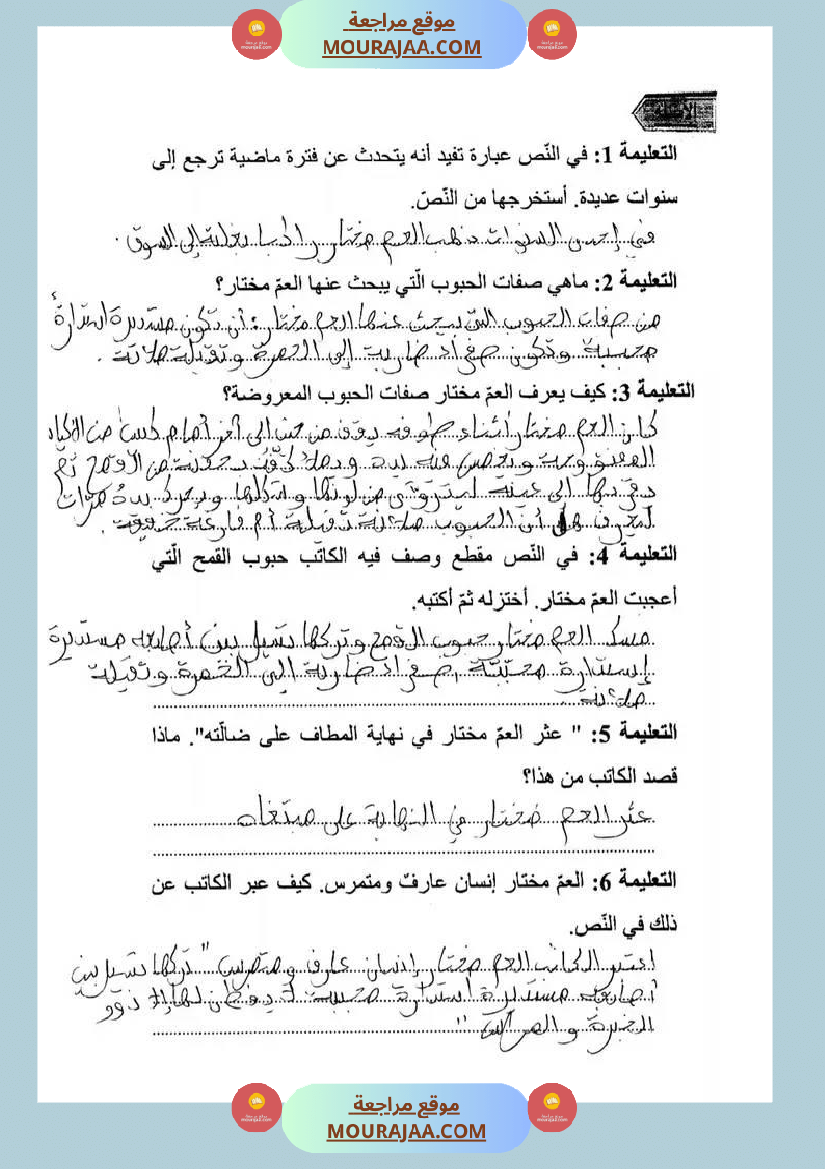 موقع مراجعة
MOURAJAA.COM
الأسئلة
التعليمة 1: في النّص عبارة تفيد أنه يتحدث عن فترة ماضية ترجع إلى
سنوات عديدة. أستخرجها من النّصّ.
في إحدى السنوات ذهب العم مختار راكبا بغلته إلى السوق.
التعليمة 2: ماهي صفات الحبوب الّتي يبحث عنها العمّ مختار؟
من صفات الحبوب التي يبحث عنها العم مختار: أن تكون مستديرة استدارة
محببة وتكون صفراء ضاربة إلى الحمرة وثقيلة ملآنة.
التعليمة 3: كيف يعرف العمّ مختار صفات الحبوب المعروضة؟
كان العم مختار أثناء طوافه يقف من حين إلى آخر أمام كيس من الأكياس
المفتوحة ويغمس فيه يده ويملأ كفّه بحفنة من القمح ثم
يقربها إلى عينه ليتروّى من لونها وشكلها ويحرك يده مرّات
ليعرف هل أن الحبوب ملآنة ثقيلة أم فارغة خفيفة.
التعليمة 4: في النّص مقطع وصف فيه الكاتب حبوب القمح الّتي
أعجبت العمّ مختار. أختزله ثمّ أكتبه.
مسك العم مختار حبوب القمح وتركها تسيل بين أصابعه مستديرة
إستدارة محبّبة، صفراء ضاربة إلى الحمرة وثقيلة
ملآنة
التعليمة 5: " عثر العمّ مختار في نهاية المطاف على ضالّته". ماذا
قصد الكاتب من هذا؟
عثر العم مختار في النهاية على مبتغاه
التعليمة 6: العمّ مختار إنسان عارفٌ ومتمرس. كيف عبر الكاتب عن
ذلك في النّص.
اعتبر الكاتب العم مختار إنسان عارف ومتمرس " تركها تسيل بين
أصابعه مستديرة استدارة محببة لا يفطن لها إلا ذوو
الخبرة و "
موقع مراجعة
MOURAJAA.COM